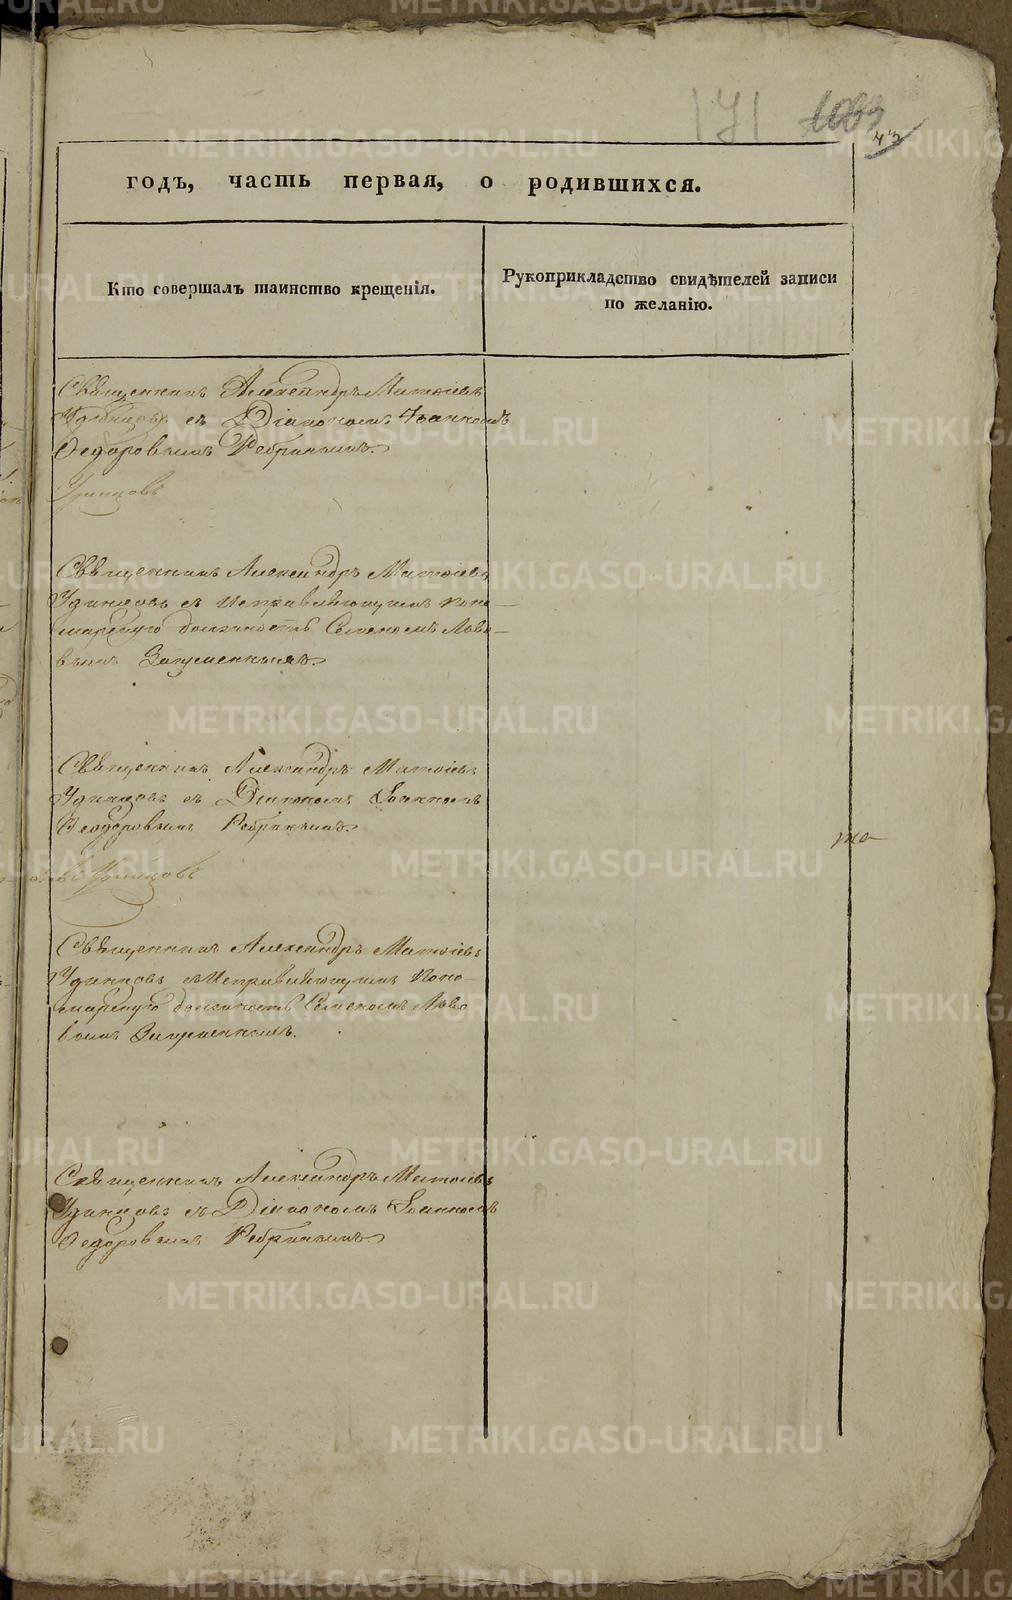 171 1083
43
годъ, часть первая, о родившихся.
Кто совершалъ таинство крещенія.
Рукоприкладство свидѣтелей записи
по желанію.
Священникъ Александръ Матѳіевъ
Удинцовъ съ Діакономъ Іоанномъ
Ѳедоровымъ Ребринымъ.
Удинцовъ
Священникъ Александръ Матѳіевъ
Удинцовъ съ Исправляющимъ поно-
марскую должность Семеномъ Льво-
вымъ
Священникъ Александръ Матѳіевъ
Удинцовъ съ Діакономъ Іоанномъ
Ѳеодоровымъ Ребринымъ.
Удинцовъ
Священникъ Александръ Матѳіевъ
Удинцовъ съ Исправляющимъ поно-
марскую должность Семеномъ Льво
вымъ
Священникъ Александръ Матѳіевъ
Удинцовъ съ Діакономъ Іоанномъ
Ѳедоровымъ Ребринымъ.
METRIKI.GASO-URAL.RU